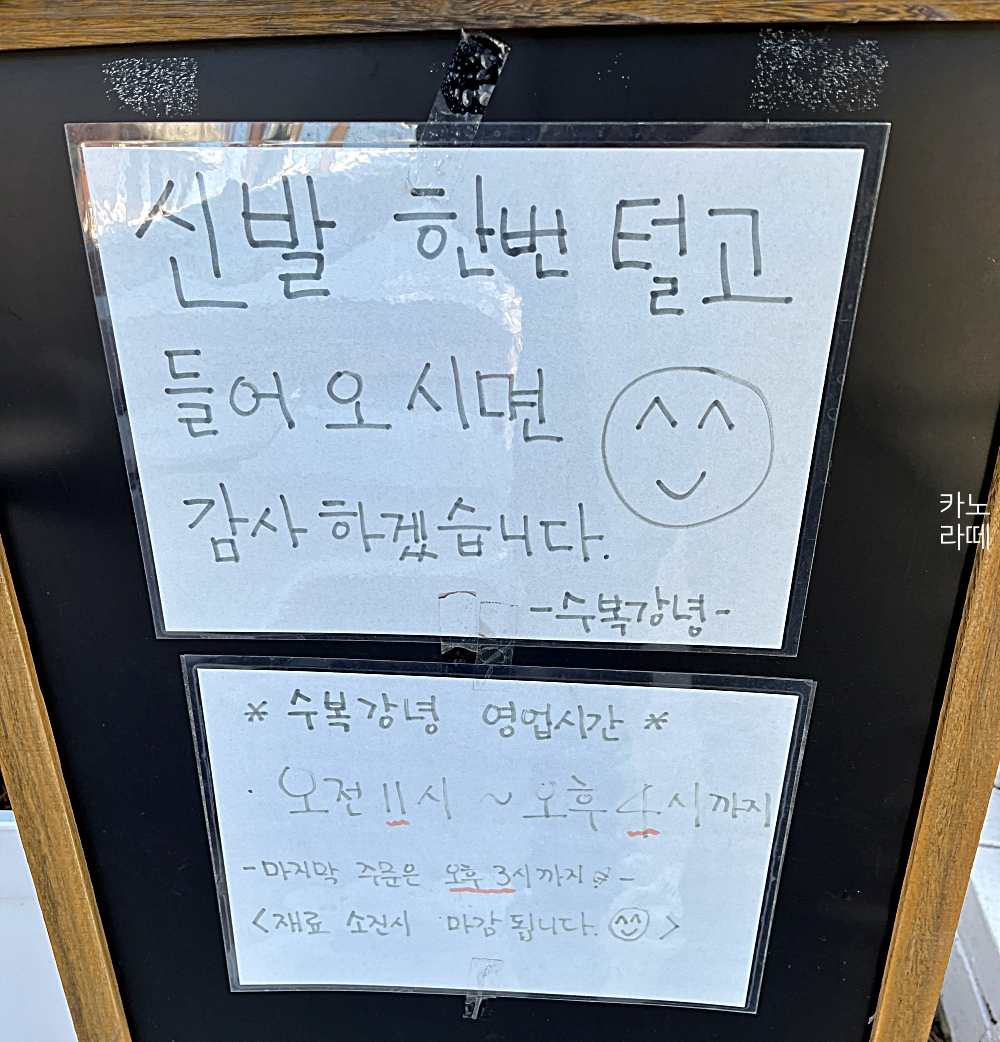 신발 한번 털고
들어 오시면
감사하겠습니다.
-수복강녕-
* 수복강녕 영업시간 *
· 오전 11시 ~ 오후 4시까지
- 마지막 주문은 오후 3시까지※ -
<재료 소진시 마감 됩니다. >
카노
라떼